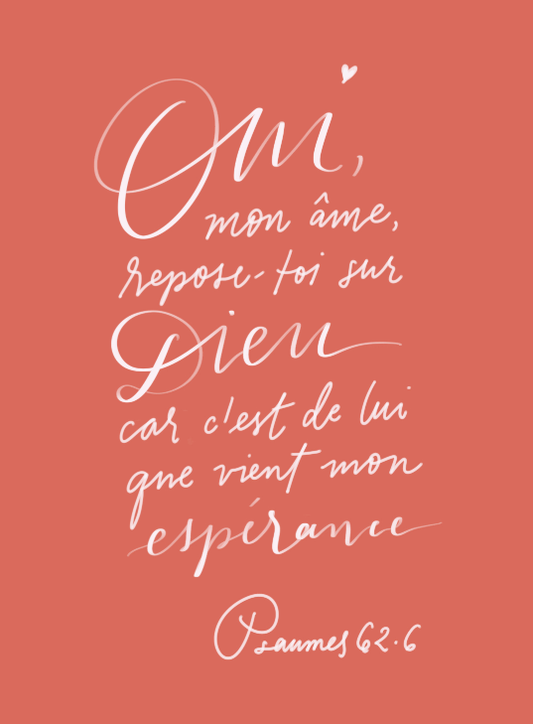 Oui,
mon âme,
repose-toi sur
Dieu
car c'est de lui
que vient mon
espérance
Psaumes 62.6